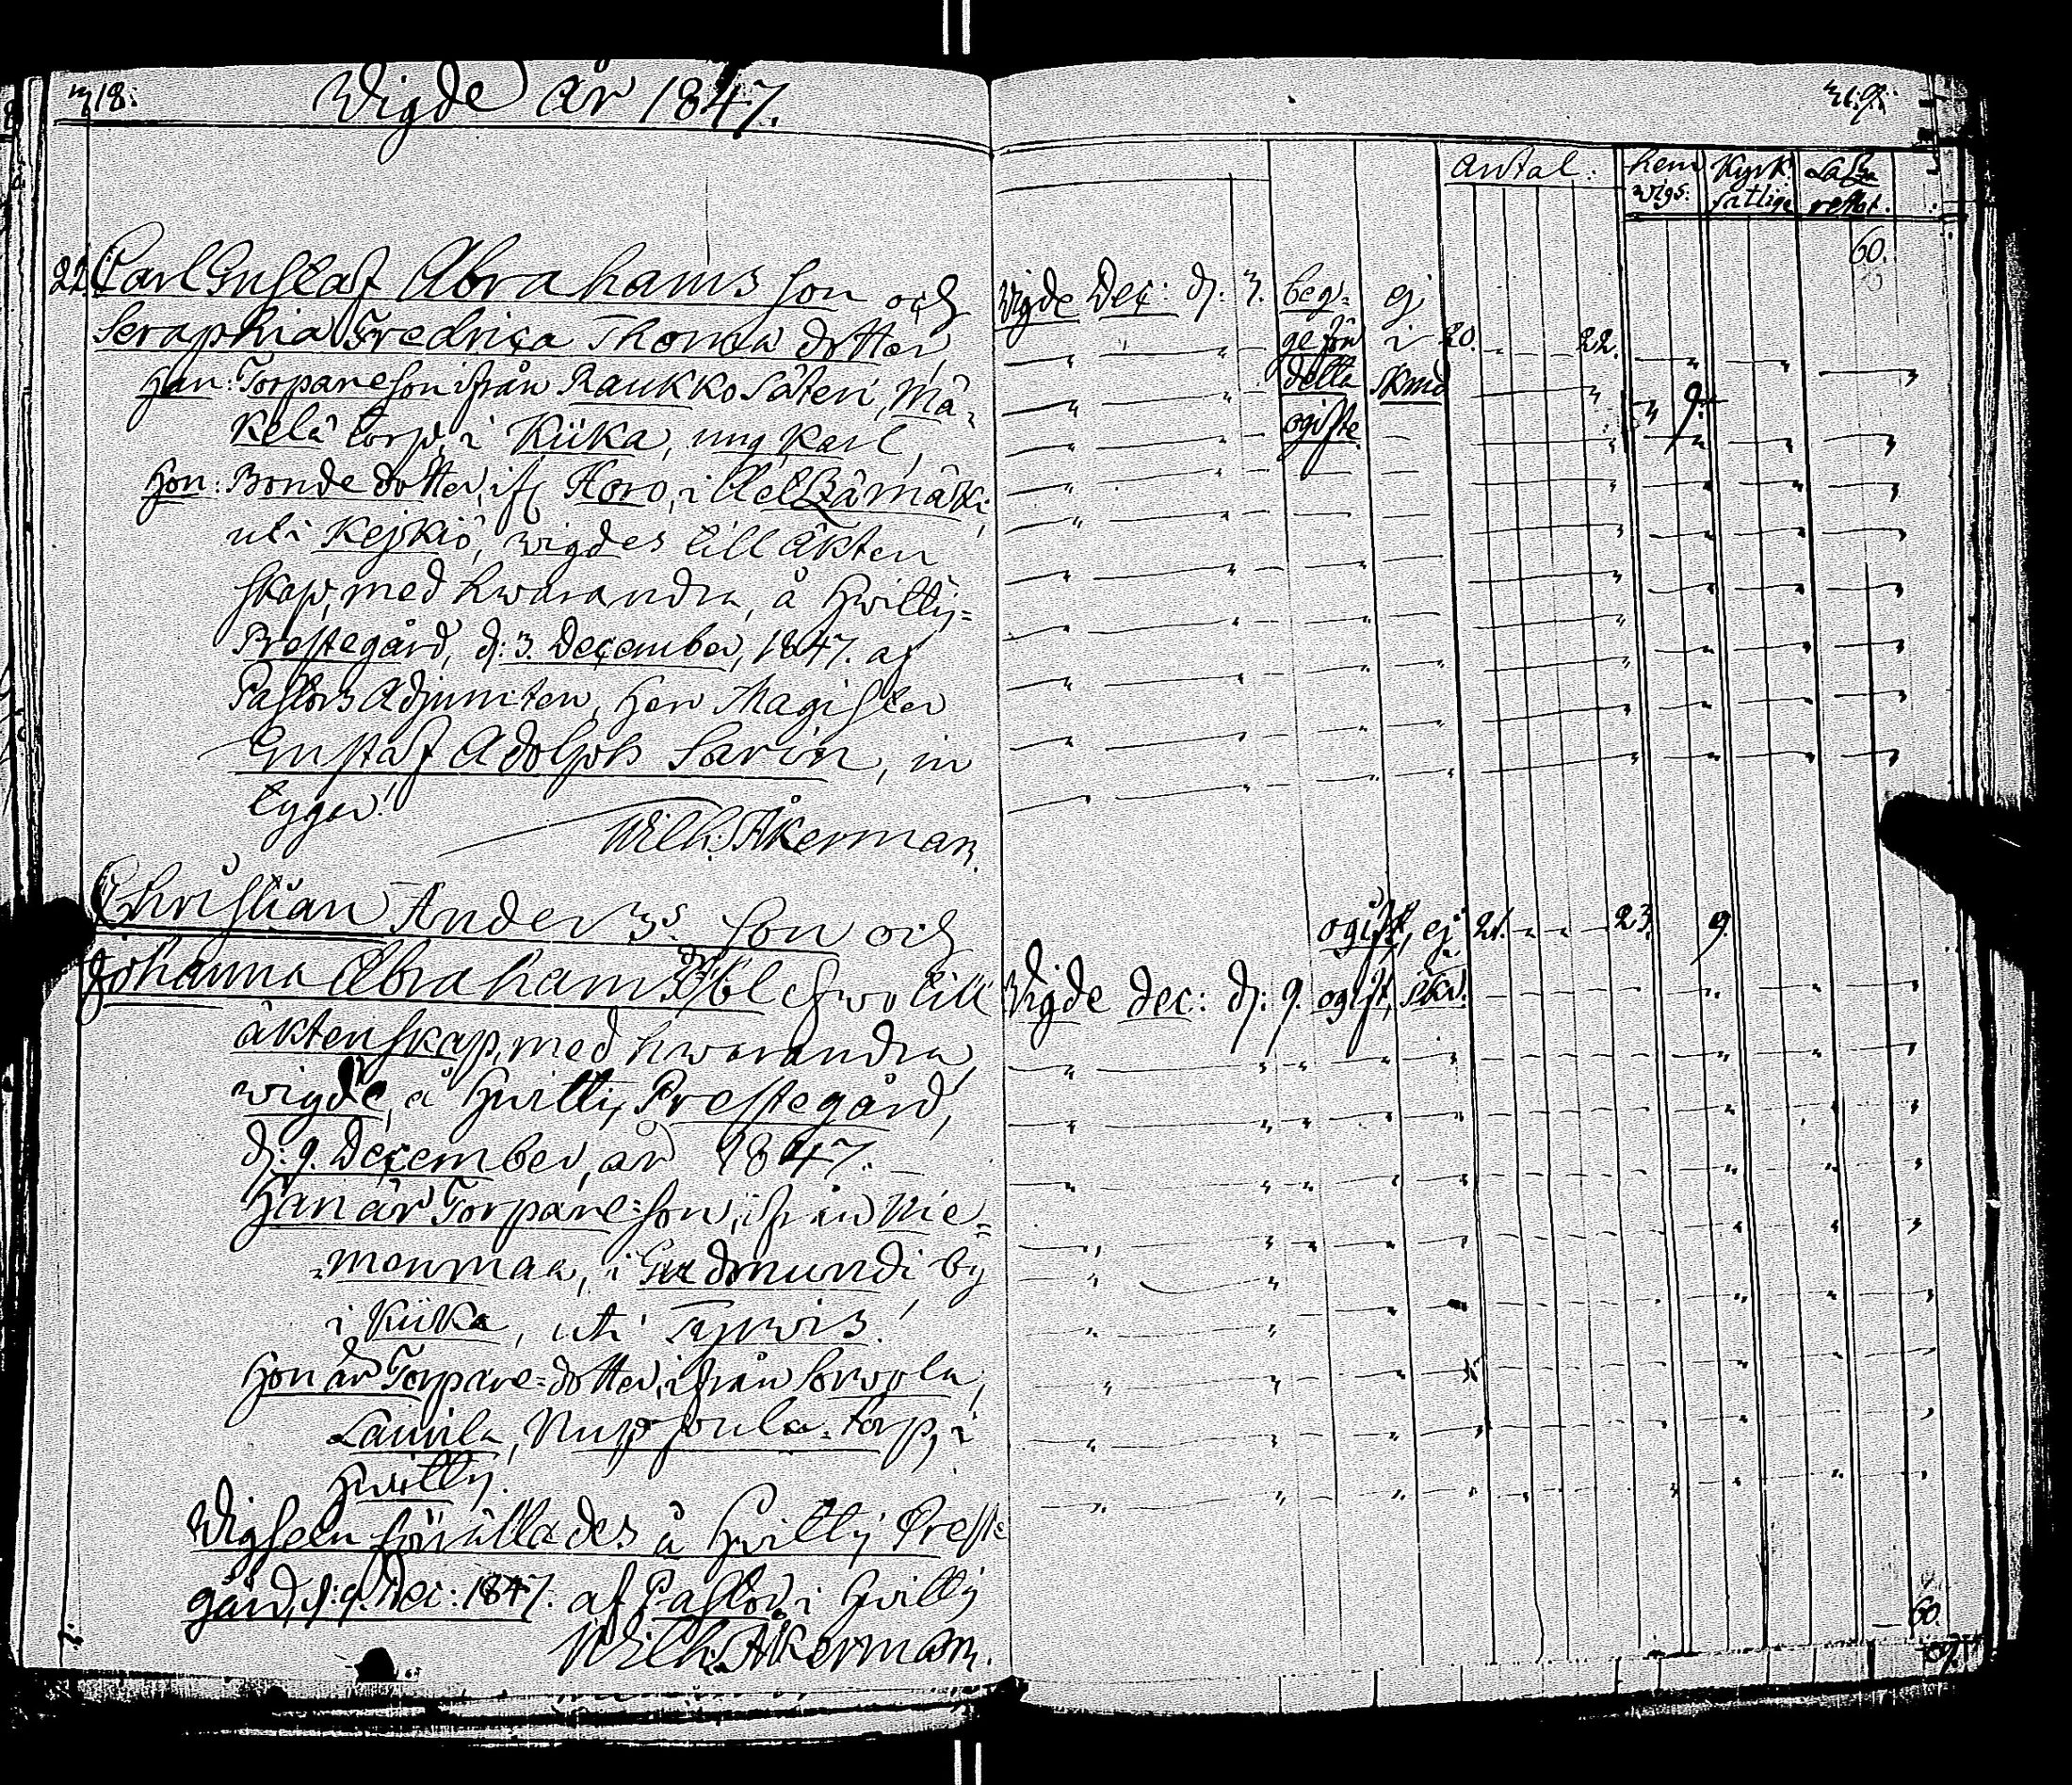 318.
Wigde år 1847.
22. Carl Gustaf Abrahams son och
Seraphia Fredrica Thoma dotter,
Han: Torpareson ifrån Raukko Säteri, Mä-
kelä torp, i Kiika, ung karl,
Hon: Bonde dotter, ifr Horo, i
uti Kejkiö, wigdes till äkten
skap, med hwarandra, å Hwittis=
Prestegård, d: 3. December, 1847. af
Pastors Adjuncten, Herr Magister
Gustaf Adolph Sarin, in
tygar!
Wilh. Åkerman.
Christian Anders son och
Johanna Abrahams blefwo till
äktenskap, med hwarandra,
wigde, å Hwittis Prestegård,
d: 9. December, år 1847.
Han är Torpare=son, ifrån Nie=
=menmaa, i Gudmundi by
i Kiika, uti Tyrwis.
Hon är Torpare=dotter, ifrån Sorwola,
Lauvila, torp, i
Hwittis.
Wigseln förrättades å Hwittis Preste
gård, d: 9. Dec: 1847. af Pastor i Hwittis
Wilh. Åkerman.
319.
antal: hem wigs. Kyrk
60.
Wigde Dec: d: 3. beg= ej
ge för i 20. 22.
detta
ogifte 9.
ogift, ej 21. 23. 9.
Wigde Dec: d: 9. ogift,
60.